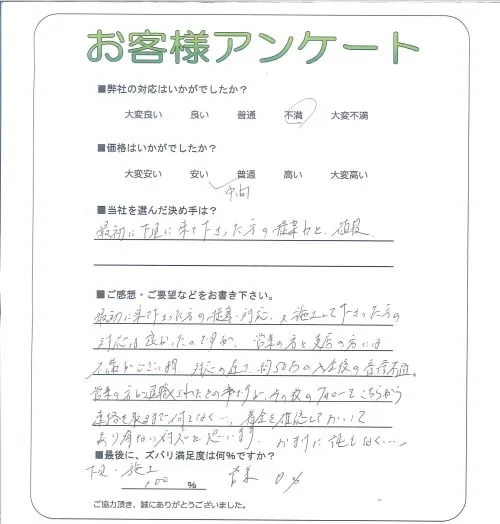 お客様アンケート
■弊社の対応はいかがでしたか？
大変良い 良い 普通 不満 大変不満
■価格はいかがでしたか？
大変安い 安い 普通 高い 大変高い
中間
■当社を選んだ決め手は？
最初に下見に来て下さった方の提案力と、値段
■ご感想・ご要望などをお書き下さい。
最初に来て下さった方の提案、対応、又施工して下さった方の
対応は良かったのですが、営業の方と支店の方には
不満がございます 対応の 約50万の入金後の音信不通。
営業の方は退職されたとの事ですが、その後のフォローもこちらから
連絡を取るまで何もなく…、着金を確認しておいて
あり得ない対応と思います。
■最後に、ズバリ満足度は何%ですか？
下見・施工 100 % 営業 0%
ご協力頂き、誠にありがとうございました。